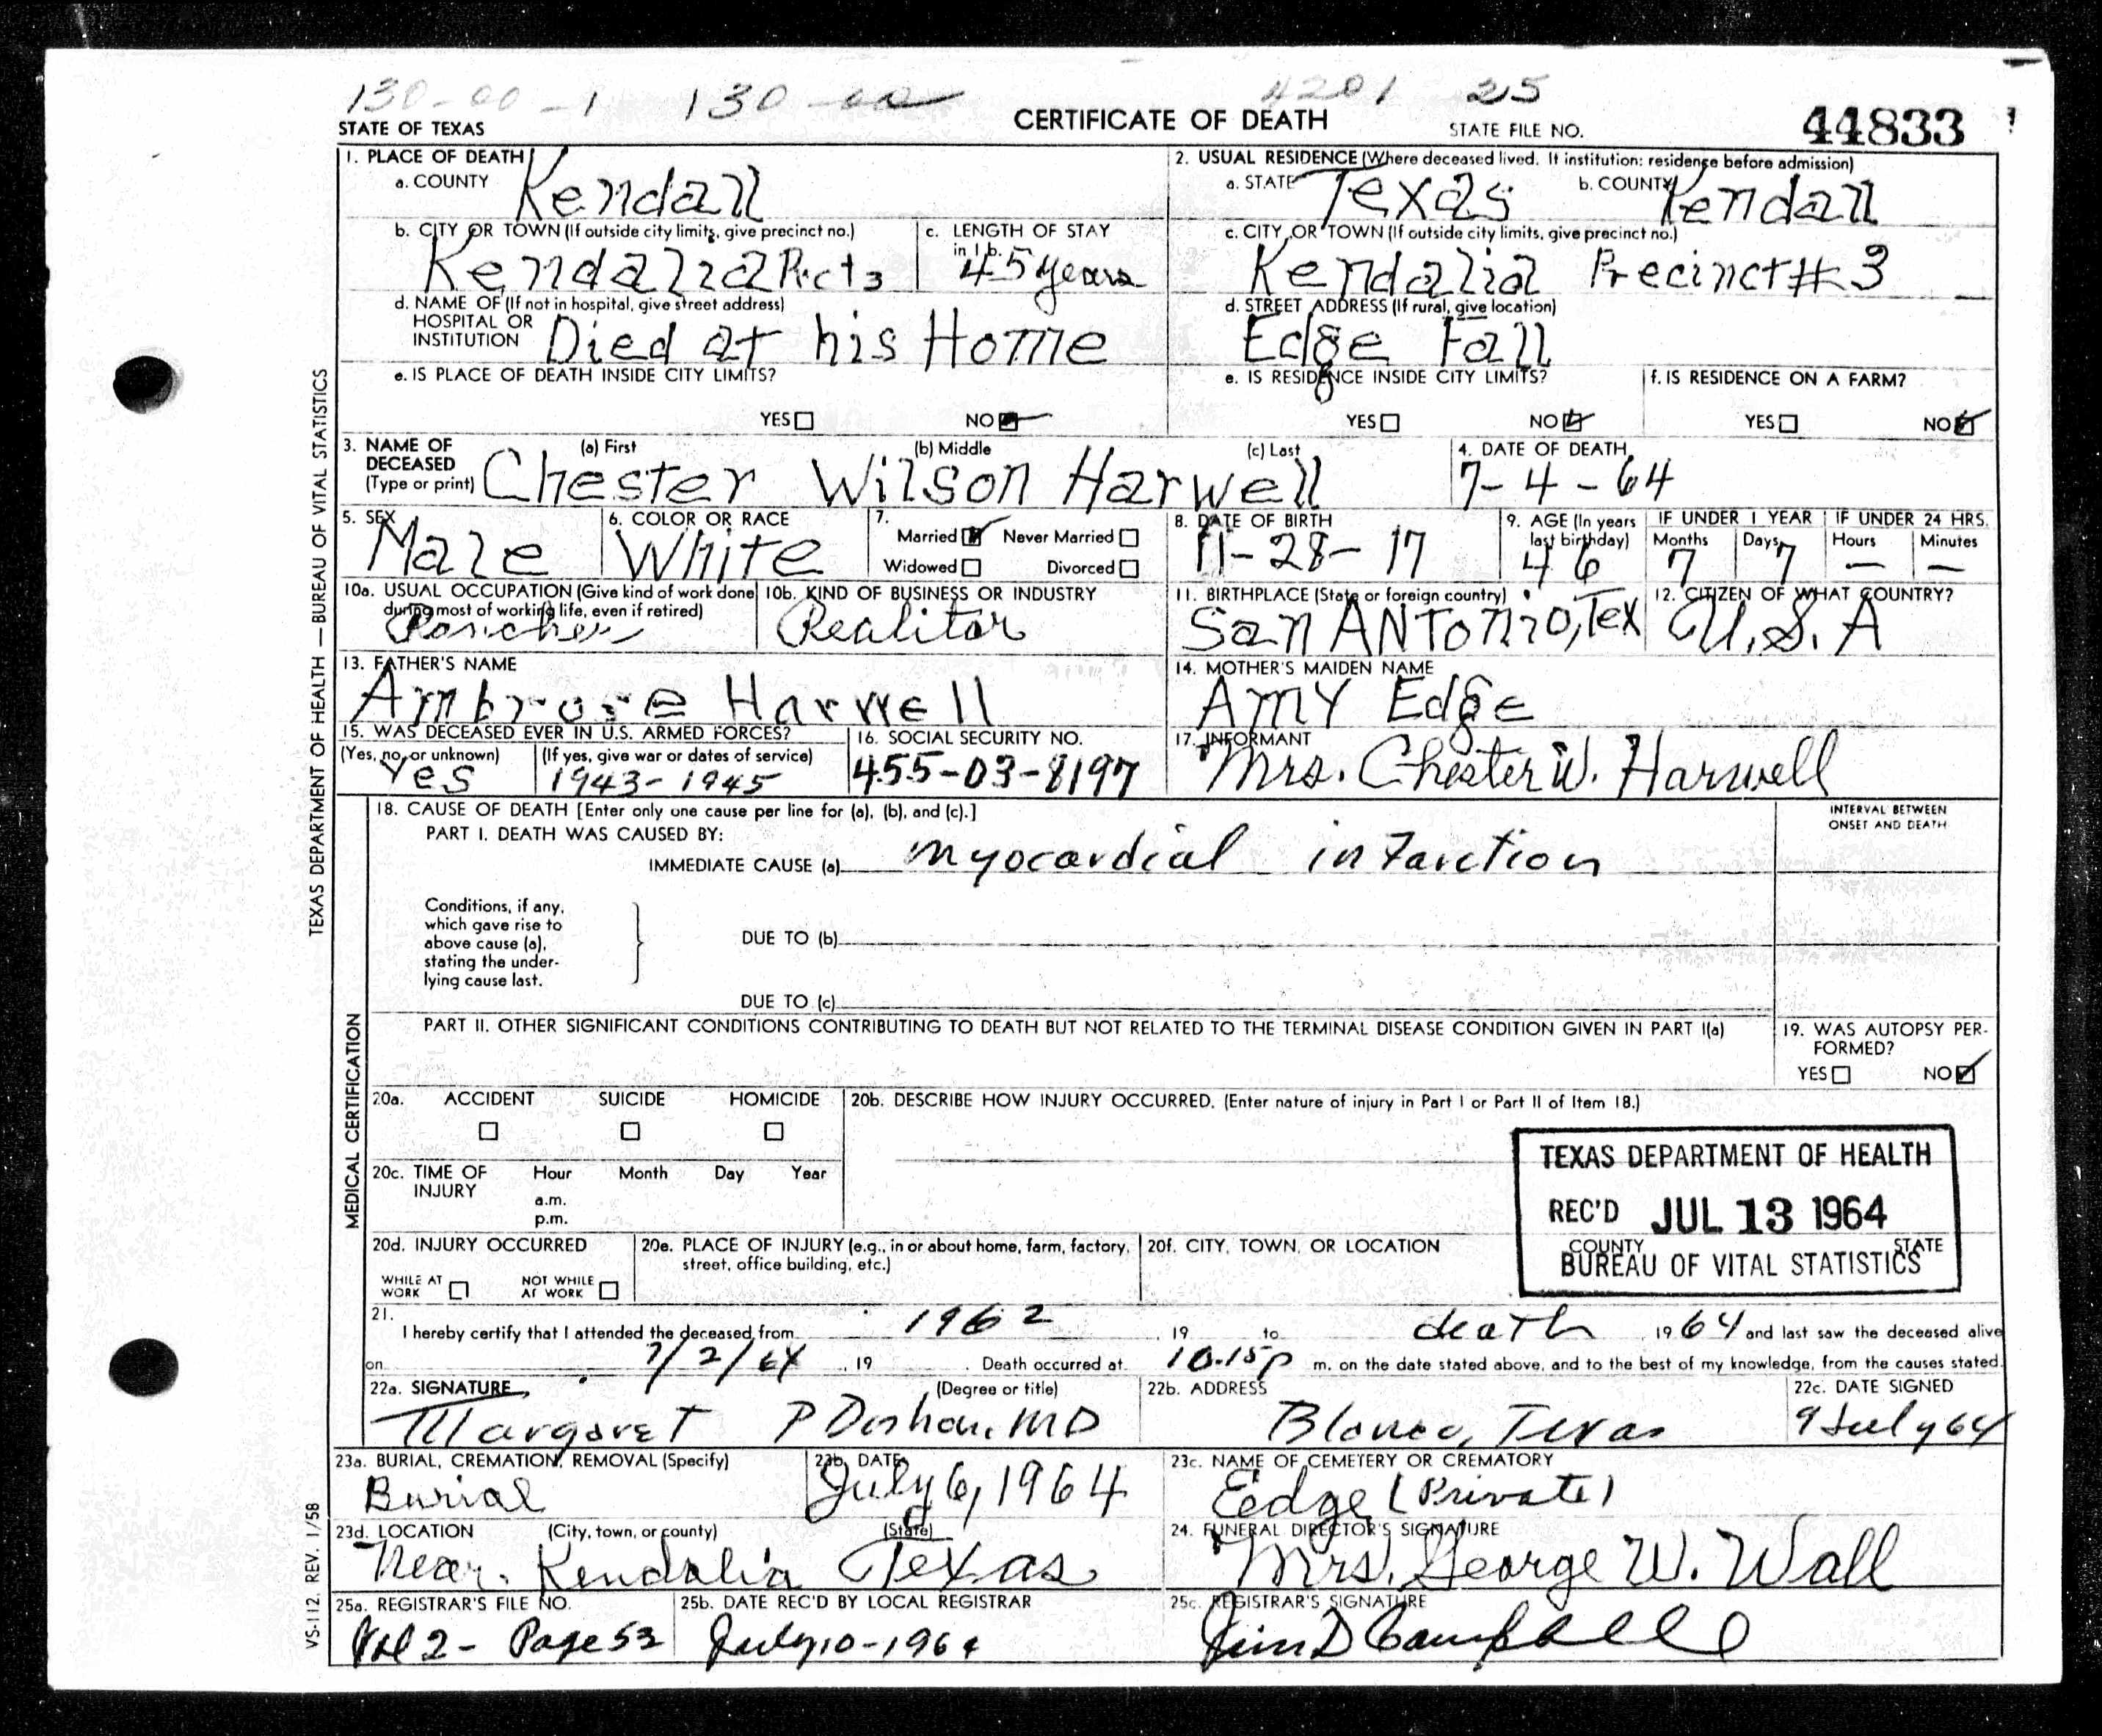 130-00-1 130-00 4201 25
STATE OF TEXAS CERTIFICATE OF DEATH STATE FILE NO. 44833
1. PLACE OF DEATH
a. COUNTY Kendall
2. USUAL RESIDENCE (Where deceased lived. If institution: residence before admission)
a. STATE Texas b. COUNTY Kendall
b. CITY OR TOWN (If outside city limits, give precinct no.) Kendalia Prct 3
c. LENGTH OF STAY in 1b. 45 years
c. CITY OR TOWN (If outside city limits, give precinct no.) Kendalia Precinct # 3
d. NAME OF (If not in hospital, give street address)
HOSPITAL OR
INSTITUTION Died at his Home
d. STREET ADDRESS (If rural, give location)
Edge Fall
e. IS PLACE OF DEATH INSIDE CITY LIMITS?
YES NO
e. IS RESIDENCE INSIDE CITY LIMITS?
YES NO
f. IS RESIDENCE ON A FARM?
YES NO
3. NAME OF DECEASED (Type or print) (a) First (b) Middle (c) Last
Chester Wilson Harwell
4. DATE OF DEATH
7-4-64
5. SEX
Male
6. COLOR OR RACE
White
7. Married Never Married
Widowed Divorced
8. DATE OF BIRTH
11-28-17
9. AGE (In years last birthday)
46
IF UNDER 1 YEAR IF UNDER 24 HRS.
Months Days Hours Minutes
7 7 — —
10a. USUAL OCCUPATION (Give kind of work done during most of working life, even if retired)
Rancher
10b. KIND OF BUSINESS OR INDUSTRY
Realitor
11. BIRTHPLACE (State or foreign country)
San ANTonio, Tex
12. CITIZEN OF WHAT COUNTRY?
U.S.A
13. FATHER'S NAME
Ambrose Harwell
14. MOTHER'S MAIDEN NAME
Amy Edge
15. WAS DECEASED EVER IN U.S. ARMED FORCES?
(Yes, no, or unknown) (If yes, give war or dates of service)
Yes 1943-1945
16. SOCIAL SECURITY NO.
455-03-8197
17. INFORMANT
Mrs. Chester W. Harwell
18. CAUSE OF DEATH [Enter only one cause per line for (a), (b), and (c).]
INTERVAL BETWEEN
ONSET AND DEATH
PART I. DEATH WAS CAUSED BY:
IMMEDIATE CAUSE (a) myocardial infarction
Conditions, if any,
which gave rise to
above cause (a),
stating the under-
lying cause last.
DUE TO (b)
DUE TO (c)
PART II. OTHER SIGNIFICANT CONDITIONS CONTRIBUTING TO DEATH BUT NOT RELATED TO THE TERMINAL DISEASE CONDITION GIVEN IN PART I(a)
19. WAS AUTOPSY PER-
FORMED?
YES NO
20a. ACCIDENT SUICIDE HOMICIDE
20b. DESCRIBE HOW INJURY OCCURRED. (Enter nature of injury in Part I or Part II of Item 18.)
20c. TIME OF INJURY Hour Month Day Year
a.m.
p.m.
TEXAS DEPARTMENT OF HEALTH
REC'D JUL 13 1964
BUREAU OF VITAL STATISTICS
20d. INJURY OCCURRED
WHILE AT WORK NOT WHILE AT WORK
20e. PLACE OF INJURY (e.g., in or about home, farm, factory,
street, office building, etc.)
20f. CITY, TOWN, OR LOCATION COUNTY STATE
21.
I hereby certify that I attended the deceased from 1962, 19 to death, 1964 and last saw the deceased alive
on 7/2/64, 19 . Death occurred at 10:15p m. on the date stated above, and to the best of my knowledge, from the causes stated.
22a. SIGNATURE (Degree or title)
Margaret P MD
22b. ADDRESS
Blanco, Texas
22c. DATE SIGNED
9 July 64
23a. BURIAL, CREMATION, REMOVAL (Specify)
Burial
23b. DATE
July 6, 1964
23c. NAME OF CEMETERY OR CREMATORY
Edge (Private)
23d. LOCATION (City, town, or county) (State)
Near Kendalia Texas
24. FUNERAL DIRECTOR'S SIGNATURE
Mrs. George W. Wall
25a. REGISTRAR'S FILE NO.
Vol 2 - Page 53
25b. DATE REC'D BY LOCAL REGISTRAR
July 10-1964
25c. REGISTRAR'S SIGNATURE
Jim D Campbell
TEXAS DEPARTMENT OF HEALTH — BUREAU OF VITAL STATISTICS
MEDICAL CERTIFICATION
VS-112. REV. 1/58